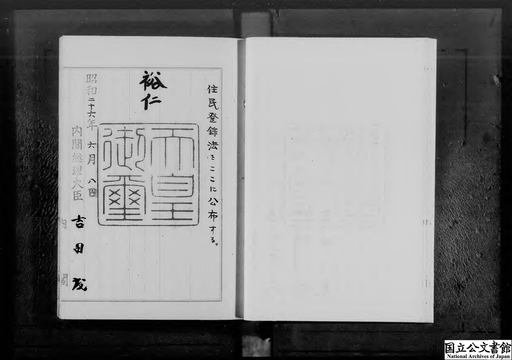 住民登録法をここに公布する。
裕仁
天皇
御璽
昭和二十六年 六月 八日
内閣総理大臣 吉田茂
内閣
国立公文書館
National Archives of Japan